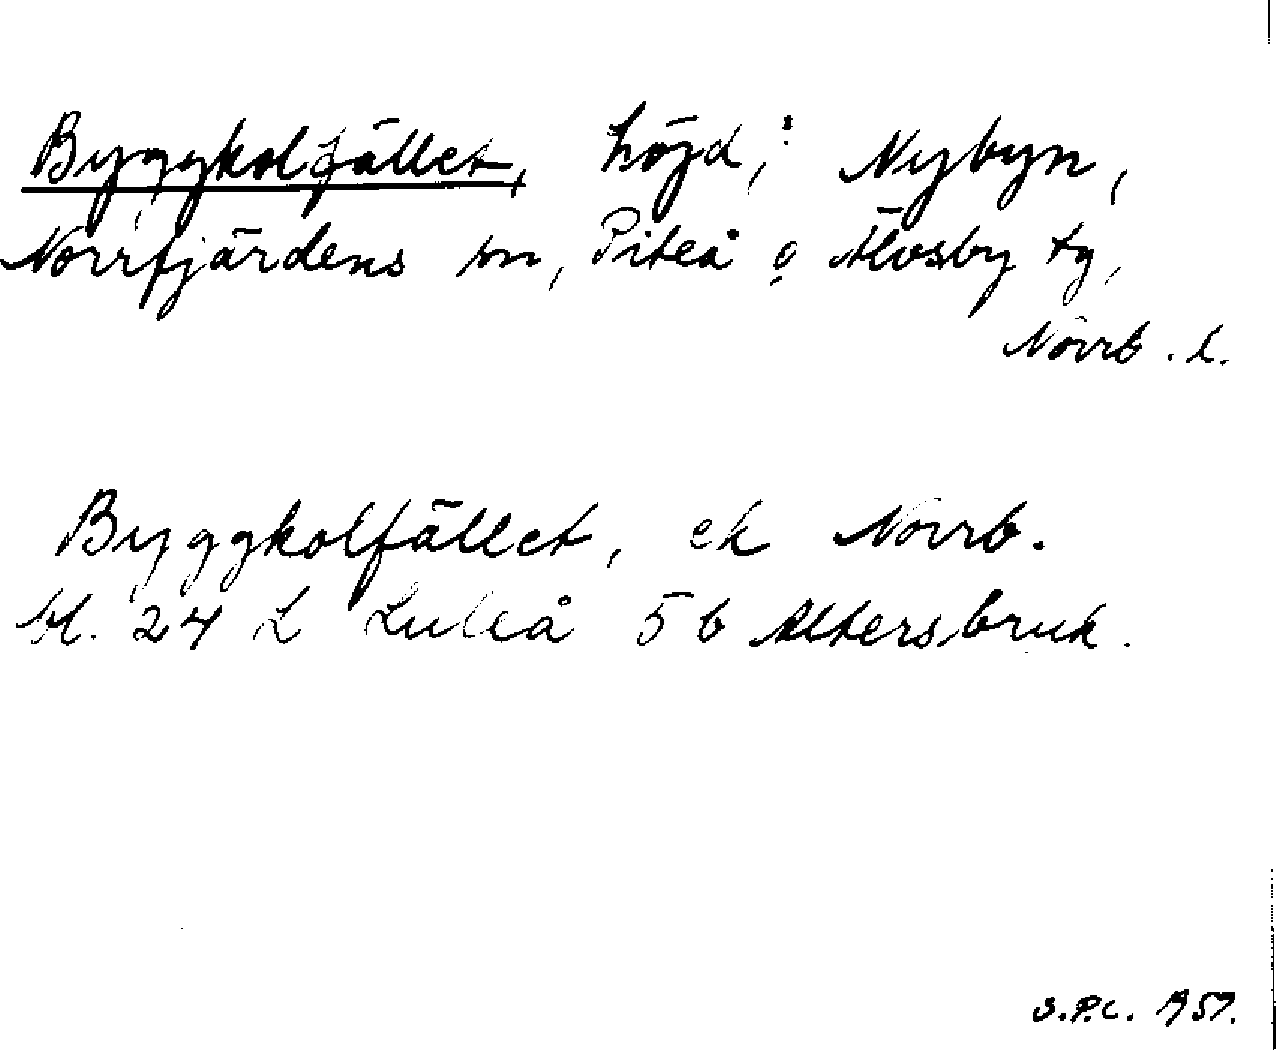 Byggkolfället, höjd, Nybyn,
Norrfjärdens sn, Piteå o Älvsby tg,
Norrb. l.
Byggkolfället, ek Norrb.
bl. 24 L Luleå 5b Altersbruk.
S.P.C. 1957.